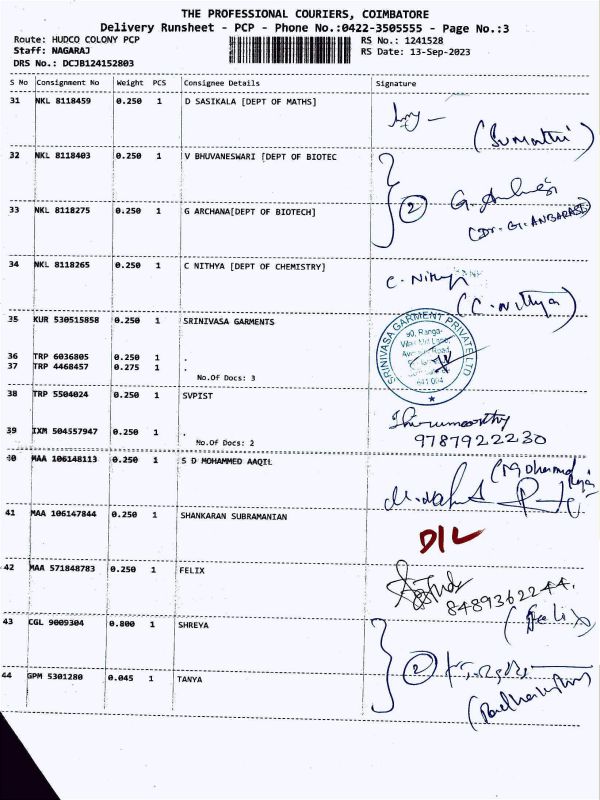 THE PROFESSIONAL COURIERS, COIMBATORE
Delivery Runsheet - PCP - Phone No.:0422-3505555 - Page No.:3
Route: HUDCO COLONY PCP RS No.: 1241528
Staff: NAGARAJ RS Date: 13-Sep-2023
DRS No.: DCJB124152803
S No Consignment No Weight PCS Consignee Details Signature
31 NKL 8118459 0.250 1 D SASIKALA [DEPT OF MATHS]
(Sumathi)
32 NKL 8118403 0.250 1 V BHUVANESWARI [DEPT OF BIOTEC
2
33 NKL 8118275 0.250 1 G ARCHANA[DEPT OF BIOTECH]
(Dr. G. ANBARASI)
34 NKL 8118265 0.250 1 C NITHYA [DEPT OF CHEMISTRY]
C. Nithya
(C. Nithya)
35 KUR 530515858 0.250 1 SRINIVASA GARMENTS
SRINIVASA GARMENT PRIVATE LTD
90, Ranga-
641 004
36 TRP 6036805 0.250 1 .
37 TRP 4468457 0.275 1 .
No.Of Docs: 3
38 TRP 5504024 0.250 1 SVPIST
Thirumoorthy
9787922230
39 IXM 504557947 0.250 1 .
No.Of Docs: 2
40 MAA 106148113 0.250 1 S D MOHAMMED AAQIL
41 MAA 106147844 0.250 1 SHANKARAN SUBRAMANIAN
D/L
42 MAA 571848783 0.250 1 FELIX
8489362244.
(Felix)
43 CGL 9009304 0.800 1 SHREYA
2
44 GPM 5301280 0.045 1 TANYA